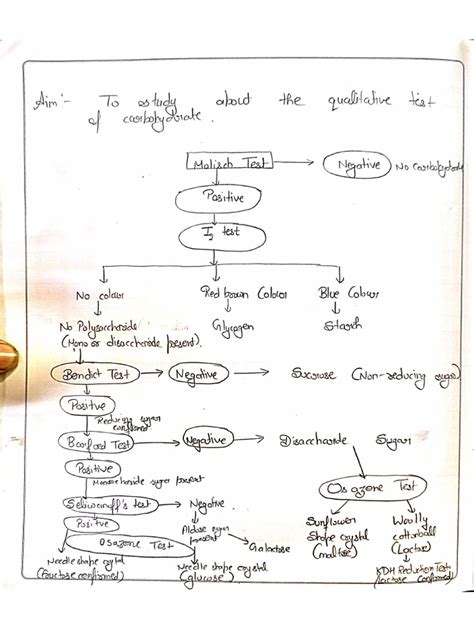 Aim:- To study about the qualitative test
of carbohydrate.
Molisch Test
Negative
No Carbohydrate
Positive
I₂ test
No colour
Red brown Colour
Blue Colour
No Polysaccharide
(Mono or disaccharide present).
Glycogen
Starch
Bendict Test
Negative
Sucrose (Non-reducing sugar)
Positive
Reducing sugar
confirmed
Barford Test
Negative
Disaccharide Sugar
Positive
Monosaccharide sugar present
Osazone Test
Seliwanoff's test
Negative
Sunflower
Shape crystal
(maltose)
Woolly
cottonball
(Lactose)
Positive
Aldose sugar
present
Galactose
Osazone Test
KOH Reduction Test
(Lactose confirmed)
Needle shape crystal
(Fructose confirmed)
Needle shape crystal
(glucose)